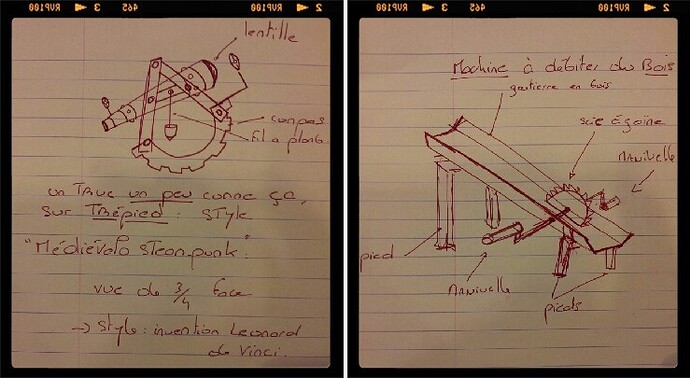 2 RVP100 3 465 RVP100
lentille
compas
fil a plomb
un Truc un peu comme ça,
sur Trépied : STyle
"Médiévalo STeam-punk".
vue de 3/4 face
→ Style : invention Leonard
de Vinci.
2 RVP100 3 465 RVP100
Machine à débiter du Bois
gouttierre en bois
scie Égoïne
MANIVELLE
pied
MANIVELLE
pieds